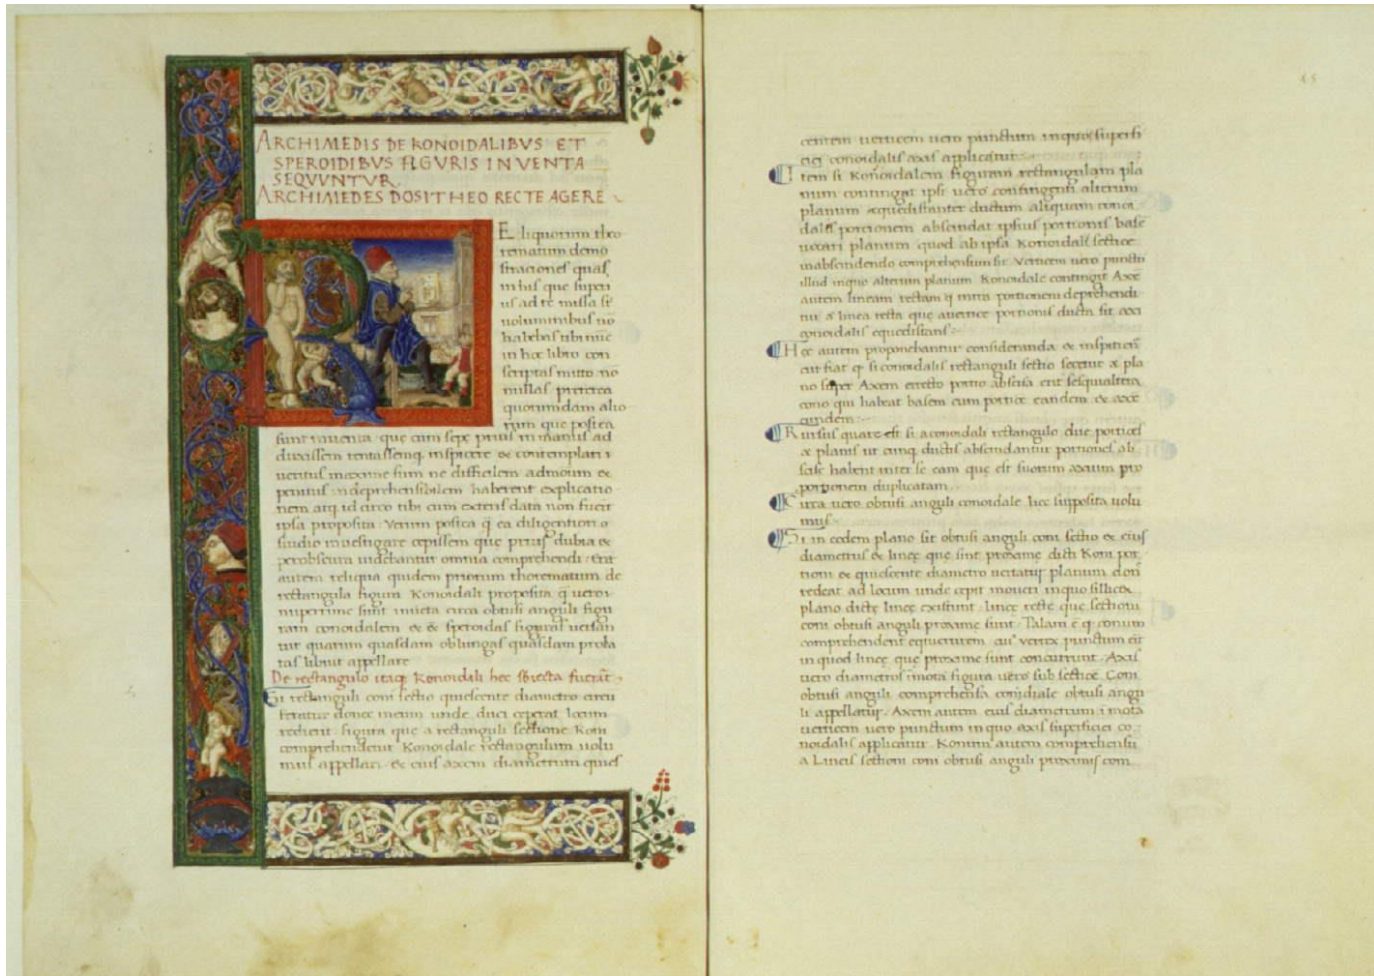 ARCHIMEDIS DE KONOIDALIBVS ET
SPEROIDIBVS FIGVRIS INVENTA
SEQVVNTVR
ARCHIMEDES DOSITHEO RECTE AGERE
E liquorum theo
rematum demō
strationes quas
in his que superi
us ad te missa sr̄
uoluminibus nō
habebas tibi nūc
in hoc libro con
scriptas mitto. nō
nullas preterea
quorundam alio
rum que postea
sunt inuenta. que cum sepe prius in manus ad
duxissem tentassemq inspicere et contemplari
ueritus maxime sum ne difficilem admodum et
penitus indeprehensibilem haberent explicatio
nem atq id circo tibi cum exteris data non fuerit
ipsa proposita. Verum postea q̄ ea diligentiori
studio inuestigare cepissem que prius dubia et
perobscura uidebantur omnia comprehendi. Erāt
autem reliqua quidem priorum theorematum de
rectangula figura Konoidali proposita q̄ uero
nuperrime sunt inuēta circa obtusi anguli figu
ram conoidalem et speroidas figuras uersan
tur quarum quasdam oblungas quasdam prola
tas libuit appellare
De rectangulo itaq Konoidali hec sbiecta fuerāt
Si rectanguli coni sectio quiescente diametro circū
feratur donec iterum unde duci ceperat locum
redierit. figura que a rectanguli sectione Koni
comprehenditur Konoidale rectangulum uolu
mus appellari. et eius axem diametrum quies
45
centem uerticem uero punctum in quo superfi
ciei conoidalis axis applicatur.
Item si Konoidalem figuram rectangulam pla
num contingat ipsi uero contingenti alterum
planum equedistanter ductum aliquam conoi
dalis portionem abscindat ipsius portionis base
uocari planum quod ab ipsa Konoidali sectioe
in abscindendo comprehensum sit. Verticem uero punctū
illud in quo alterum planum Konoidale contingit Axē
autem lineam rectam q̄ intra portionem deprehendi
tur a linea recta que a uertice portionis ducta sit axi
conoidalis equedistans
Hec autem proponebantur consideranda et inspiciēn
cur fiat q̄ si conoidalis rectanguli sectio secetur a pla
no super Axem errecto portio abscisa erit sesquialtera
cono qui habeat basem cum portioē eandem et axē
eundem
Rursus quare est si a conoidali rectangulo due portioēs
a planis ut cunq ductis abscindantur portiones ab
scise habent inter se eam que est suorum axium pro
portionem duplicatam
Circa uero obtusi anguli conoidale hec supposita uolu
mus
Si in eodem plano sit obtusi anguli coni sectio et eius
diametrus et linee que sint proxime dicti Koni por
tioni et quiescente diametro uertatur planum donec
redeat ad locum unde cepit moueri in quo scilicet
plano dicte linee existunt. linee recte que sectioni
coni obtusi anguli proxime sunt. Palam ē q̄ conum
comprehendent equicrurem. cuius uertex punctum erit
in quod linee que proxime sunt concurrunt. Axis
uero diametros imota figura uero sub sectioē Coni
obtusi anguli comprehensa conoidale obtusi angu
li appellatur. Axem autem eius diametrum imota
uerticem uero punctum in quo axis superficiei co
noidalis applicatur. Konum autem comprehensū
a Lineis sectioni coni obtusi anguli proximis com